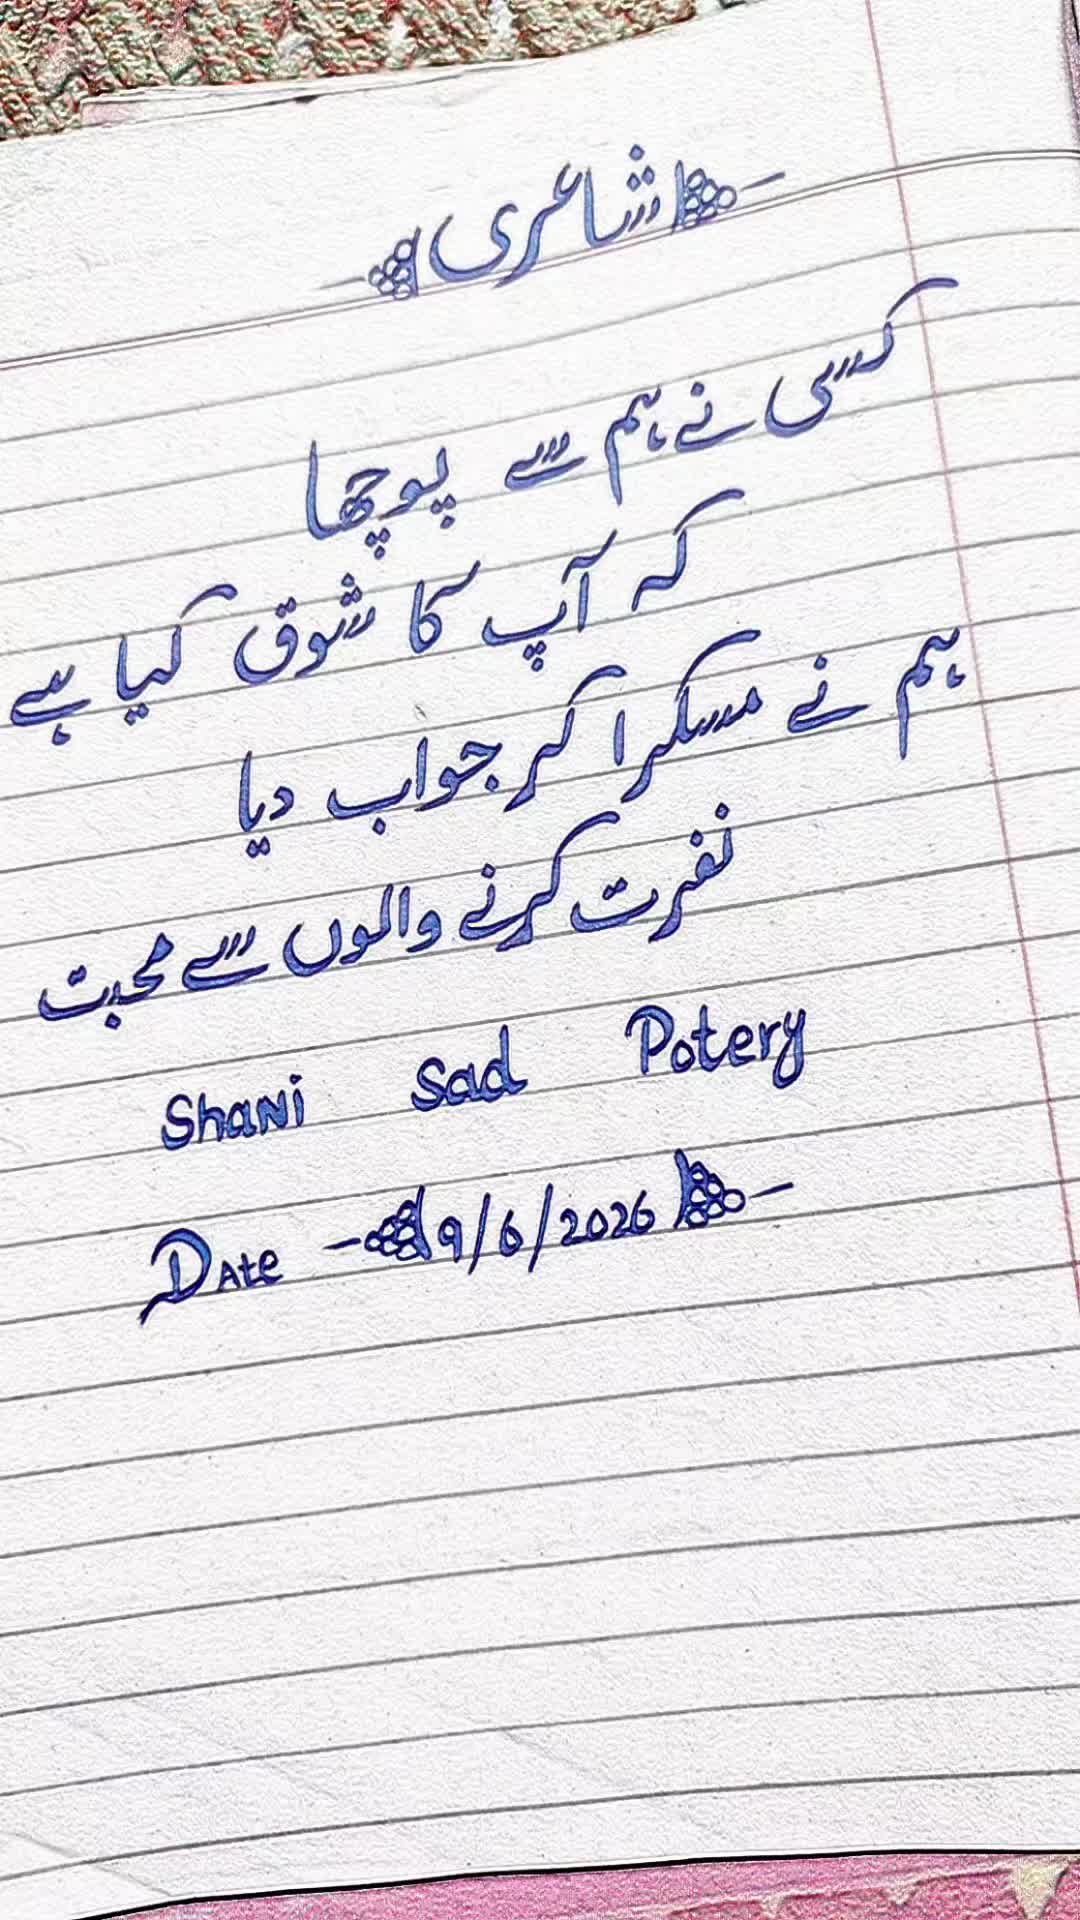 شاعری
کسی نے ہم سے پوچھا
کہ آپ کا شوق کیا ہے
ہم نے مسکرا کر جواب دیا
نفرت کرنے والوں سے محبت
Shani Sad Potery
Date 9/6/2026